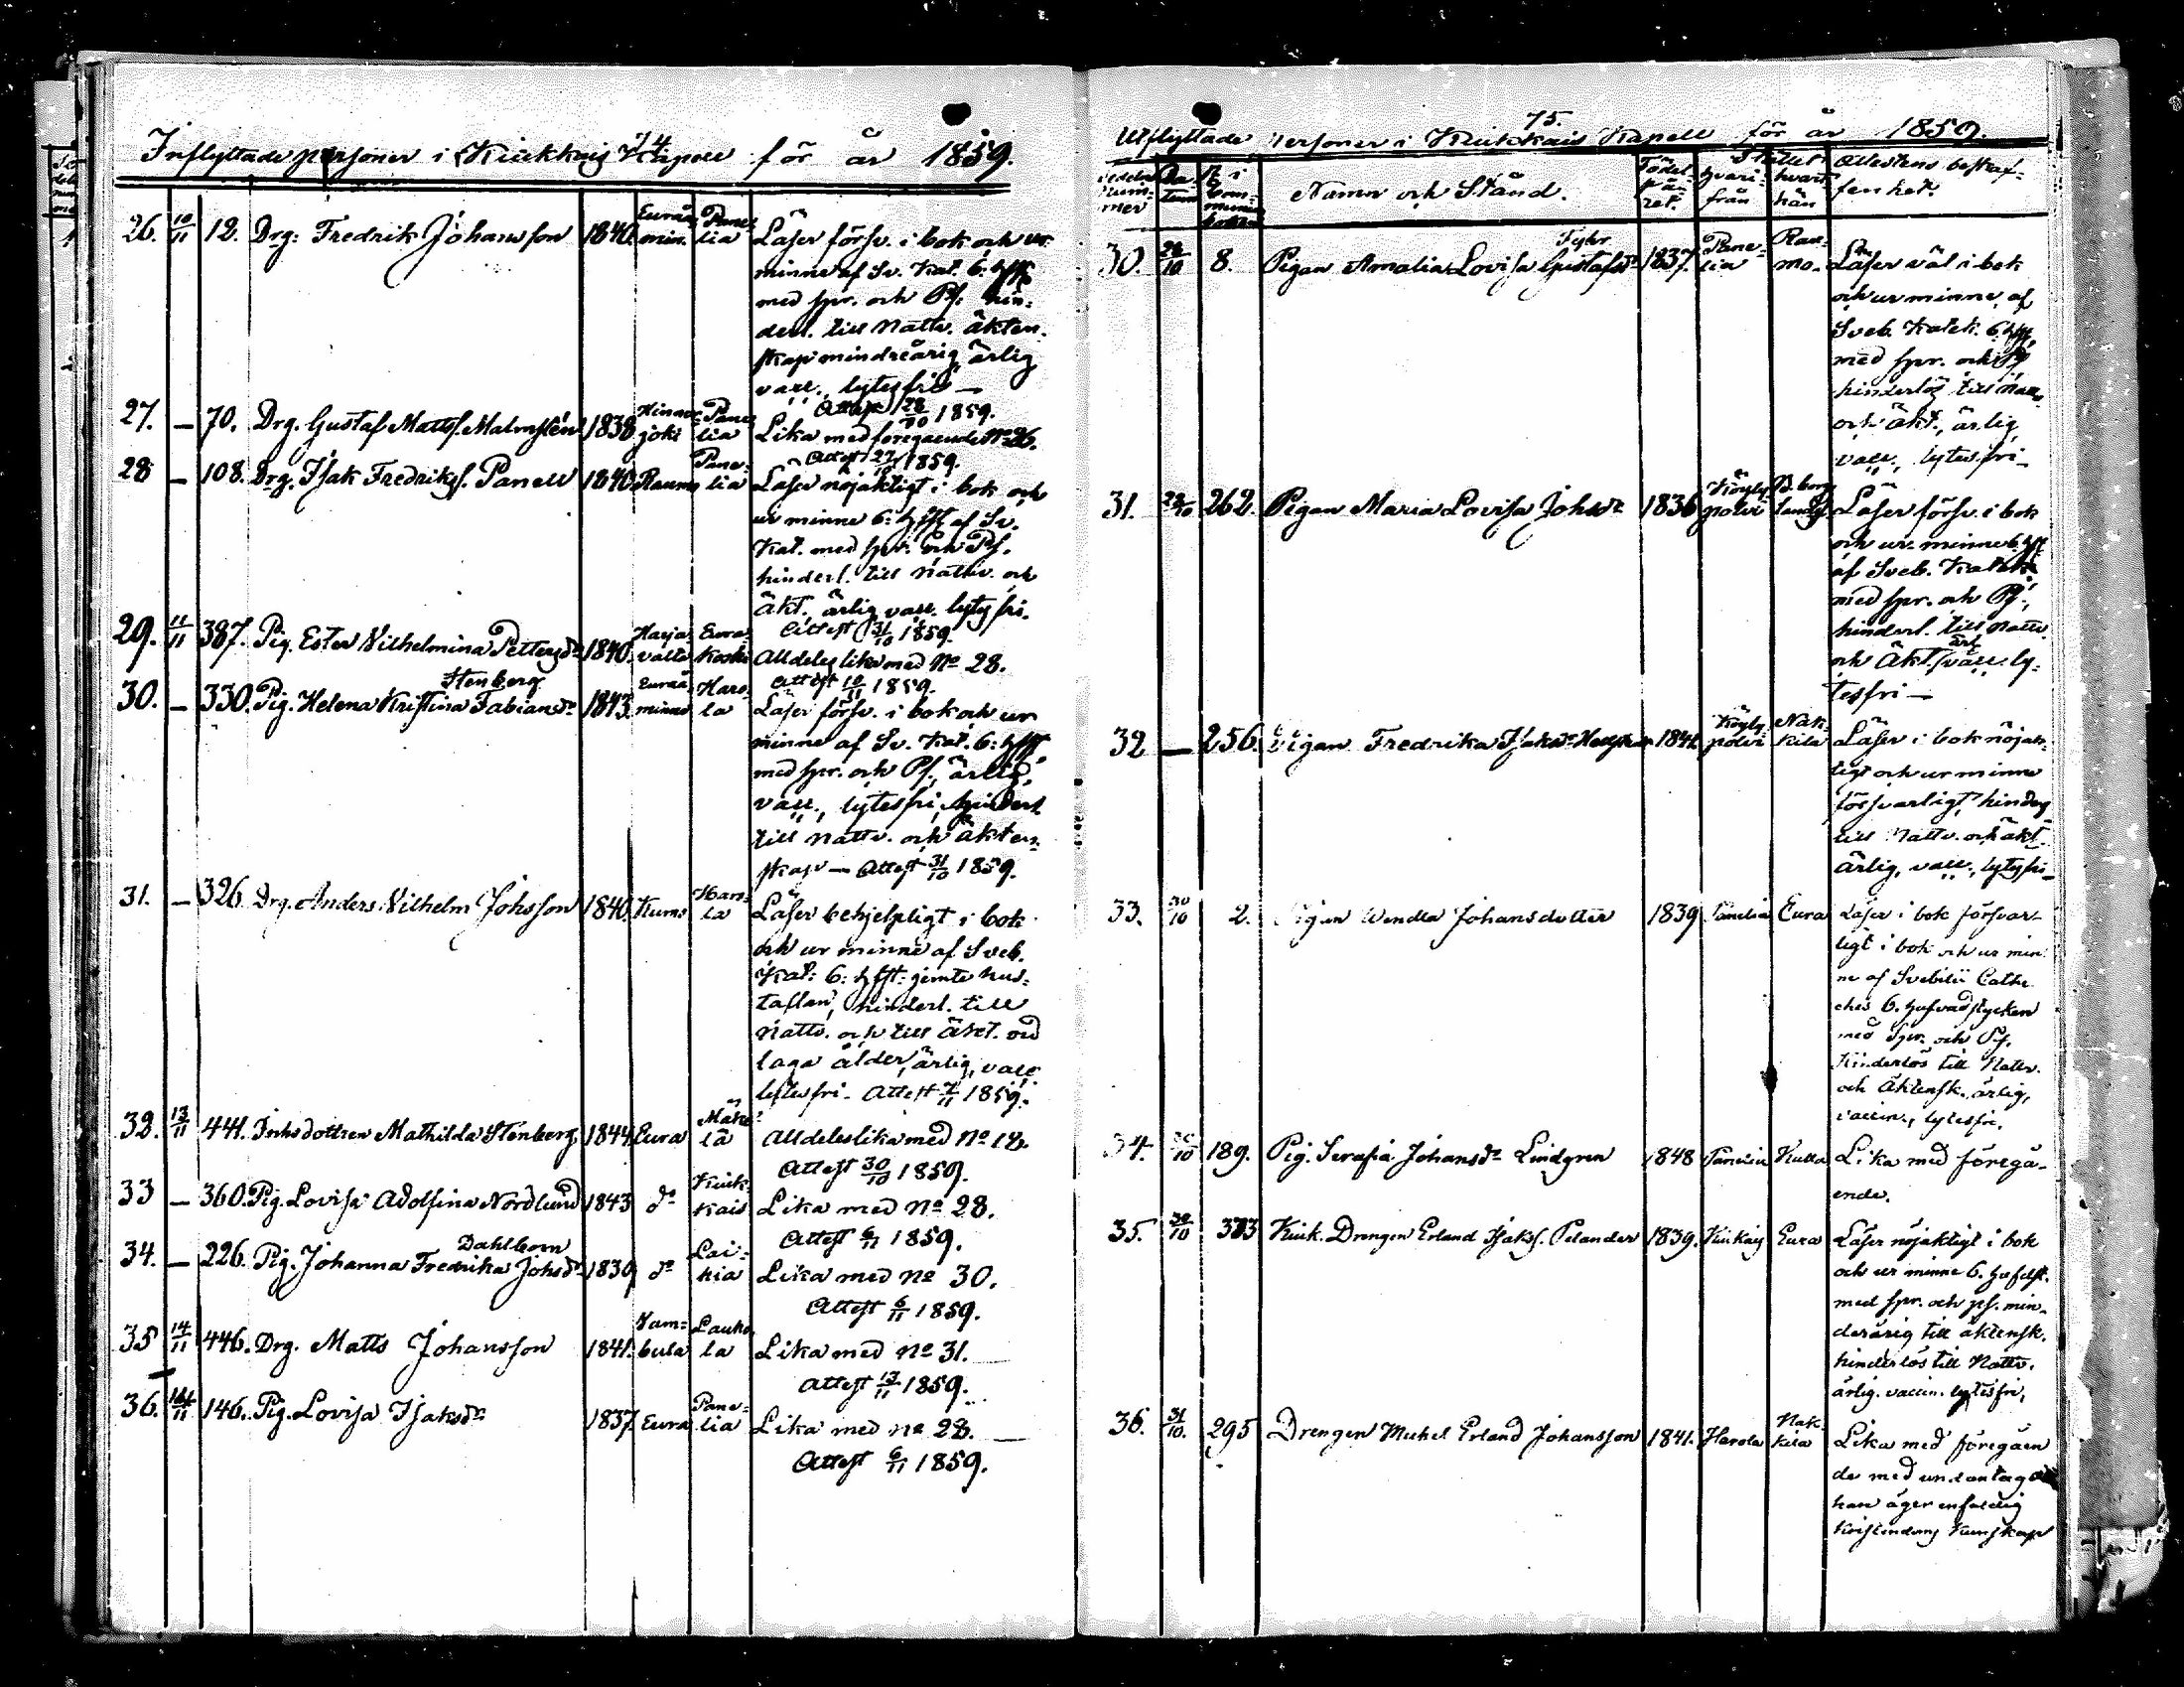 74
Inflyttade personer i Kiukkais Kapell för år 1859.
26. 10/11 12. Drg: Fredrik Johansson 1840. Euraåminne Panelia Läser försv. i bok och ur
minne af Sv. Kat. 6: hfst
med spr. och Ps: hin-
derl. till Nattv. äkten-
skap mindreårig, ärlig
vacc., lytesfri —
Attest 28/10 1859.
27. — 70. Drg. Gustaf Mattss. Malmstén 1838 Hinnerjoki Panelia Lika med föregående No 26.
Attest 27/10 1859.
28 — 108. Drg. Isak Fredrikss. Panell 1840 Raumo Panelia Läser nöjaktigt i bok och
ur minne 6: hfst af Sv.
Kat. med spr. och Ps.
hinderl. till Nattv. och
äkt. ärlig vacc. lytesfri.
Attest 31/10 1859.
29. 11/11 387. Pig. Ester Vilhelmina Pettersdr 1840. Harjavalta Eurakoski Alldeles lika med No 28.
Attest 10/11 1859.
Stenberg
30. — 330. Pig. Helena Kristina Fabiansdr 1843. Euraåminne Harola Läser försv. i bok och ur
minne af Sv. Kat. 6: hfst
med spr. och Ps., ärlig,
vacc., lytesfri, hinderl.
till Nattv. och äkten-
skap — Attest 31/10 1859.
31. — 326 Drg. Anders Vilhelm Johsson 1840. Kumo Harola Läser behjelpligt i bok
och ur minne af Sveb.
Kat: 6: hfst: jemte hus-
taflan, hinderl. till
Nattv. och till äkt. vid
laga ålder, ärlig, vacc.
lytesfri. Attest 7/11 1859.
32. 13/11 441. Inhsdottren Mathilda Stenberg 1844. Eura Mäkelä Alldeles lika med No 18.
Attest 30/10 1859.
33 — 360. Pig. Lovisa Adolfina Nordlund 1843 do Kiukkais Lika med No 28.
Attest 6/11 1859.
Dahlbom
34. — 226. Pig. Johanna Fredrika Johsdr 1839 do Laihia Lika med No 30.
Attest 6/11 1859.
35 14/11 446. Drg. Matts Johansson 1841. Jambula Laukola Lika med No 31.
Attest 13/11 1859.
36. 14/11 146. Pig. Lovisa Isaksdr 1837 Eura Panelia Lika med No 28.
Attest 6/11 1859.
75.
Utflyttade Personer i Kiukkais Kapell för år 1859.
Namn och Stånd. Födelseåret. Stället hvarifrån hvarthän Attestens beskaf-
fenhet.
30. 8. Pigan Amalia Lovisa Gustafsdr 1837. Panelia Raumo. Läser väl i bok
och ur minne af
Sveb. Katek. 6 hfst,
med spr. och Ps
hinderlös till Nattv.
och äkt., ärlig
vacc., lytesfri —
31. 262. Pigan Maria Lovisa Johsdr 1836 Köylypolvi B.borg landsf. Läser försv. i bok
och ur minne 6 hfst
af Sveb. Katek
med spr. och Ps.,
hinderl. till Nattv.
och äkt. ärl. vacc. ly-
tesfri —
32 — 256. Pigan Fredrika Isaksdr 1841. Köylypolvi Nakkila Läser i bok nöjak-
tigt och ur minne
försvarligt, hinderlös
till Nattv. och äkt.
ärlig, vacc., lytesfri —
33. 30/10 2. Pigan Wendla Johansdotter 1839 Panelia Eura Läser i bok försvar-
ligt i bok och ur min-
ne af Svebilii Cathe-
ches 6. hufvudstycken
med Spr. och Ps.
Hinderlös till Nattv.
och äktensk., ärlig,
vaccin., lytesfri.
34. 30/10 189. Pig. Serafia Johansdr Lindgren 1848 Panelia Kulla Lika med föregå-
ende.
35. 30/10 373 Kiuk. Drengen Erland Isakss. Pelander 1839. Kiukais Eura Läser nöjaktigt i bok
och ur minne 6. hufdst.
med spr. och ps. min-
derårig till äktensk.
hinderlös till Nattv.
ärlig. vaccin. lytesfri,
36. 31/10. 295 Drengen Michel Erland Johansson 1841. Harola Nakkila Lika med föregåen
de med undantag att
han äger enfaldig
Kristendoms Kunskap